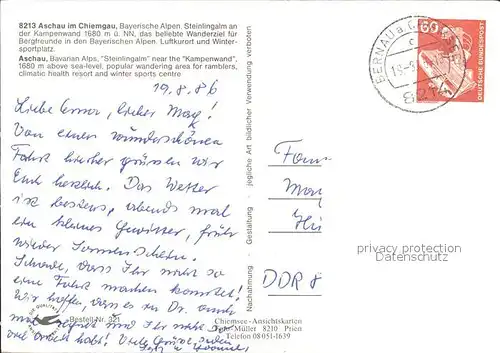 8213 Aschau im Chiemgau, Bayerische Alpen, Steinlingalm an
der Kampenwand 1680 m ü. NN, das beliebte Wanderziel für
Bergfreunde in den Bayerischen Alpen. Luftkurort und Winter-
sportplatz.
Aschau, Bavarian Alps, "Steinlingalm" near the "Kampenwand",
1680 m above sea-level, popular wandering area for ramblers,
climatic health resort and winter sports centre
19.8.86
Liebe lieber Max!
Von einer wunderschönen
Fahrt hierher grüssen wir
Euch herzlich. Das Wetter
ist bestens, abends mal
ein kleines Gewitter, früh
wieder Sonnenschein.
Schade, dass Ihr nicht so
eine Fahrt machen könntet!
Wir hoffen, dass es Dir auch
gut geht und Ihr nicht so
viel habt! Viele Grüsse
Bestell Nr. 321
Nachahmung - Gestaltung - jegliche Art bildlicher Verwendung verboten
Chiemsee-Ansichtskarten
Müller 8210 Prien
Telefon 08051-1639
BERNAU a. CHIEMSEE
8214
60
DEUTSCHE BUNDESPOST
Fam
Max
DDR 8
privacy protection
Datenschutz